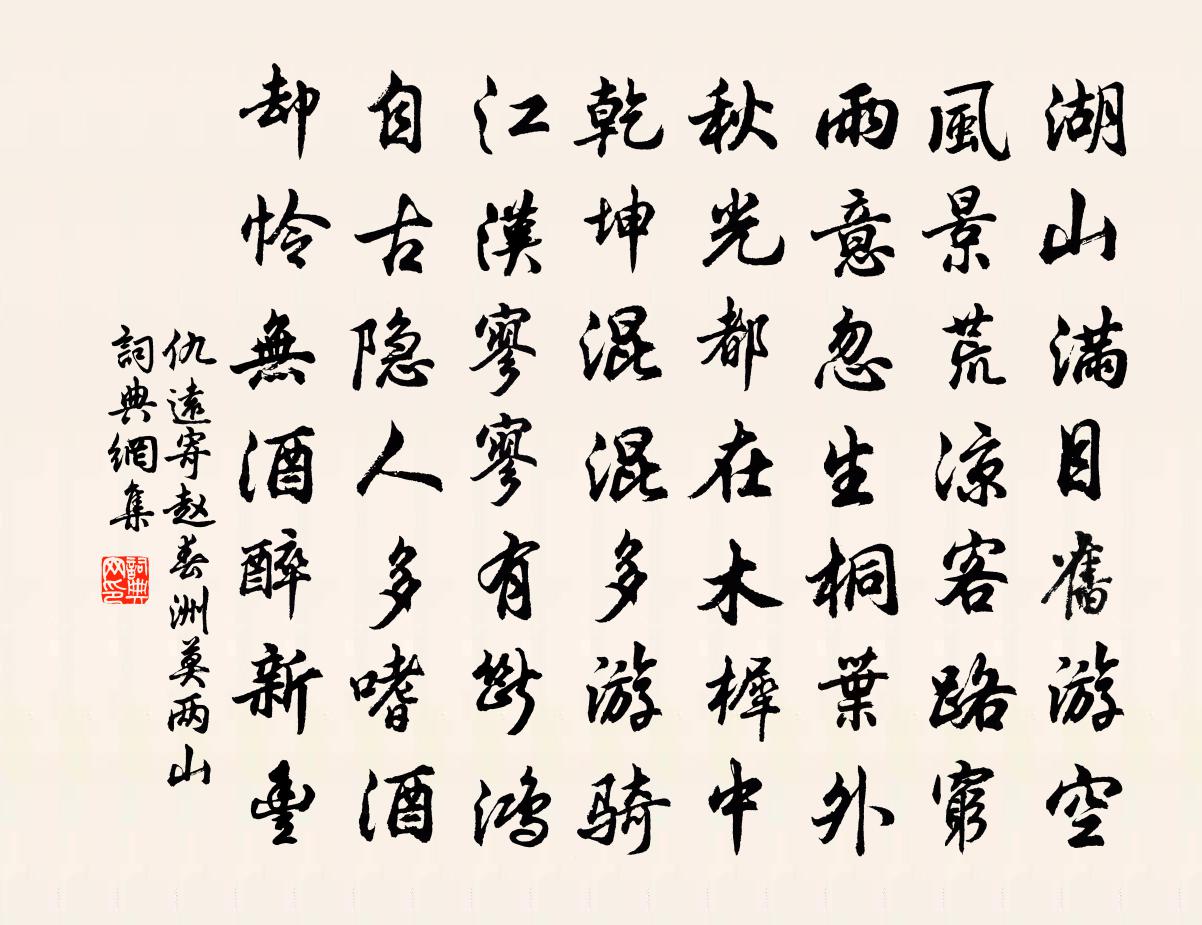 湖山滿目舊游空
風景荒涼客路窮
雨意忽生桐葉外
秋光都在木樨中
乾坤混混多游骑
江漢寥寥有斷鴻
自古隐人多嗜酒
却怜無酒醉新豐
仇遠寄赵春洲莫两山
詞典網集
詞典网印